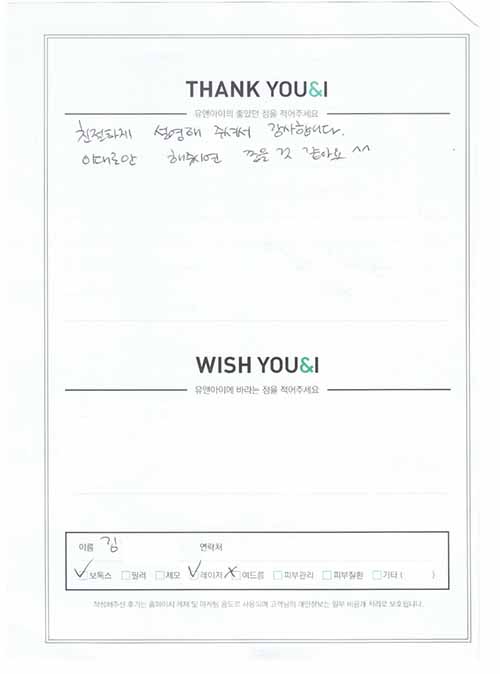 THANK YOU&I
유앤아이의 좋았던 점을 적어주세요
친절하게 설명해 주셔서 감사합니다.
이대로만 해주시면 좋을 것 같아요 ^^
WISH YOU&I
유앤아이에 바라는 점을 적어주세요
이름 김 연락처
보톡스 필러 제모 레이저 여드름 피부관리 피부질환 기타 ( )
작성해주신 후기는 홈페이지 게재 및 마케팅 용도로 사용되며 고객님의 개인정보는 일부 비공개 처리로 보호됩니다.